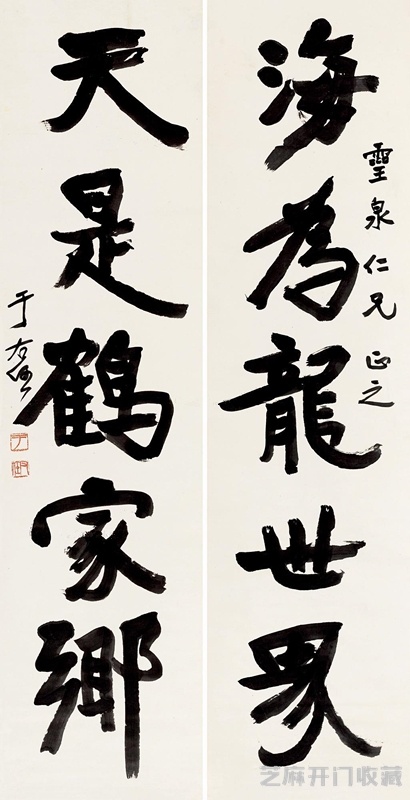 海為龍世界
靈泉仁兄正之
天是鶴家鄉
于右任
芝麻开门收藏